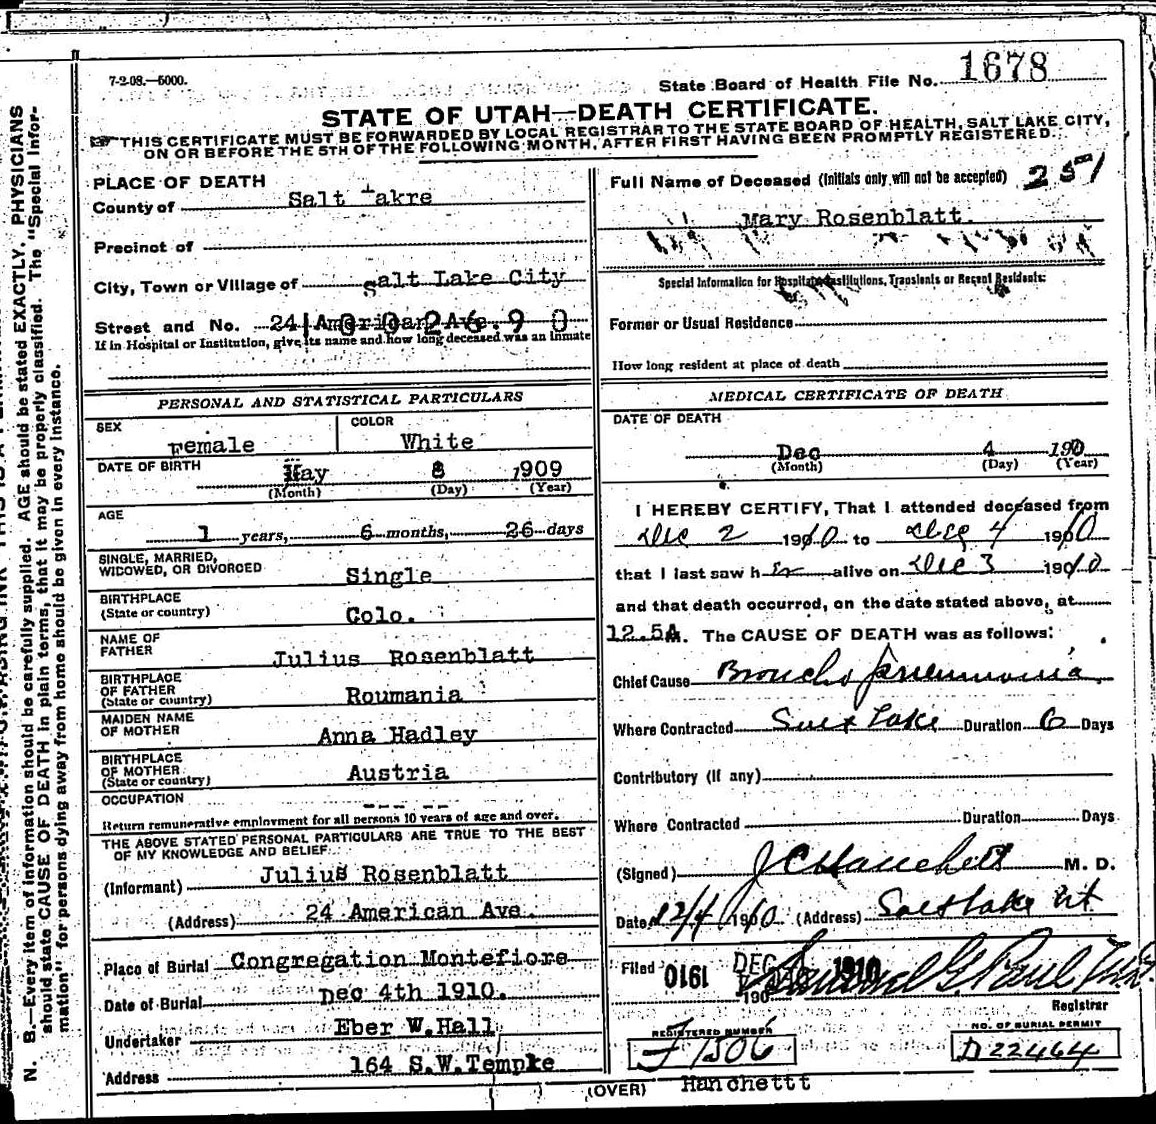 7-2-08.—5000.
State Board of Health File No. 1678
STATE OF UTAH—DEATH CERTIFICATE.
THIS CERTIFICATE MUST BE FORWARDED BY LOCAL REGISTRAR TO THE STATE BOARD OF HEALTH, SALT LAKE CITY,
ON OR BEFORE THE 5TH OF THE FOLLOWING MONTH, AFTER FIRST HAVING BEEN PROMPTLY REGISTERED.
PLACE OF DEATH
County of Salt Lakre
Precinct of
City, Town or Village of Salt Lake City
Street and No. 24 American Ave.
If in Hospital or Institution, give its name and how long deceased was an inmate
PERSONAL AND STATISTICAL PARTICULARS
SEX Female
COLOR White
DATE OF BIRTH May 8 1909
(Month) (Day) (Year)
AGE
1 years, 6 months, 26 days
SINGLE, MARRIED,
WIDOWED, OR DIVORCED Single
BIRTHPLACE
(State or country) Colo.
NAME OF
FATHER Julius Rosenblatt
BIRTHPLACE
OF FATHER
(State or country) Roumania
MAIDEN NAME
OF MOTHER Anna Hadley
BIRTHPLACE
OF MOTHER
(State or country) Austria
OCCUPATION
Return remunerative employment for all persons 10 years of age and over.
THE ABOVE STATED PERSONAL PARTICULARS ARE TRUE TO THE BEST
OF MY KNOWLEDGE AND BELIEF.
(Informant) Julius Rosenblatt
(Address) 24 American Ave.
Place of Burial Congregation Montefiore
Date of Burial Dec 4th 1910.
Undertaker Eber W.Hall
Address 164 S.W.Temple
Full Name of Deceased (Initials only will not be accepted) 251
Mary Rosenblatt.
Special Information for Hospitals, Institutions, Transients or Recent Residents:
Former or Usual Residence
How long resident at place of death
MEDICAL CERTIFICATE OF DEATH
DATE OF DEATH
Dec 4 190
(Month) (Day) (Year)
I HEREBY CERTIFY, That I attended deceased from
Dec 2 1910 to Dec 4 1910
that I last saw her alive on Dec 3 1910
and that death occurred, on the date stated above, at
12.5A. The CAUSE OF DEATH was as follows:
Chief Cause Broncho pneumonia
Where Contracted Salt Lake Duration 6 Days
Contributory (if any)
Where Contracted Duration Days
(Signed) J C Hanchett M. D.
Dated 12/4 1910 (Address) Salt Lake Ut
Filed DEC 1910 Samuel G. Paul M.D.
Registrar
REGISTERED NUMBER
F 1506
NO. OF BURIAL PERMIT
D 22464
(OVER) Hanchettt
N. B.—Every item of information should be carefully supplied. AGE should be stated EXACTLY. PHYSICIANS
should state CAUSE OF DEATH in plain terms, that it may be properly classified. The "Special Infor-
mation" for persons dying away from home should be given in every instance.